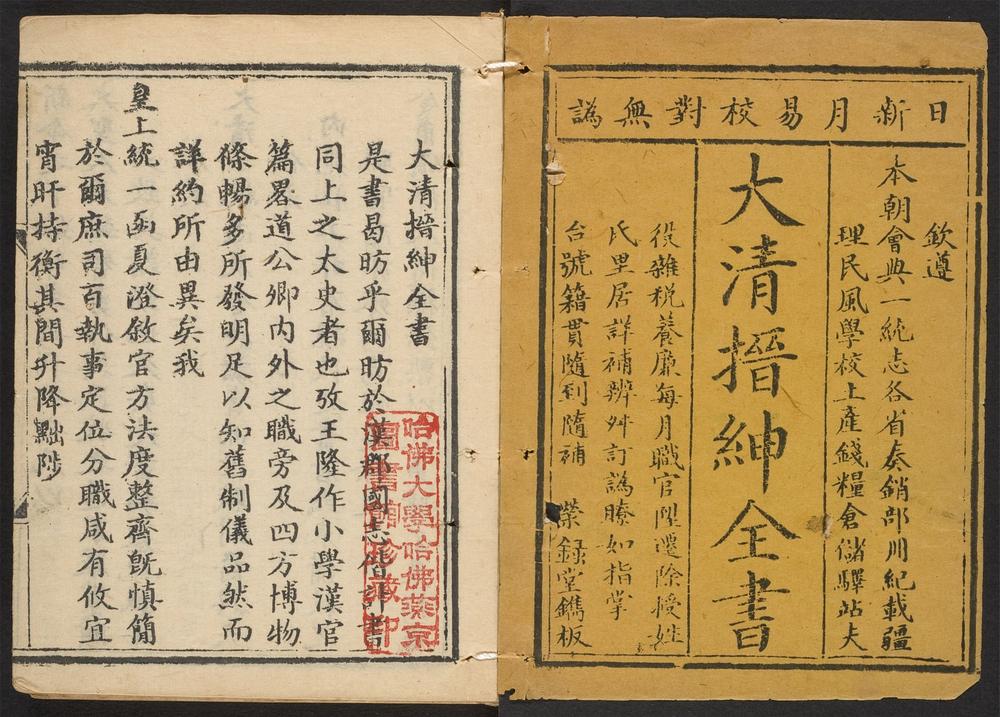 日新月易校對無譌
欽遵
本朝會典一統志各省奏銷部冊紀載疆
理民風學校土產錢糧倉儲驛站夫
大清搢紳全書
役雜稅養廉每月職官陞遷除授姓
氏里居詳補辨舛訂譌瞭如指掌
台號籍貫隨到隨補 榮錄堂鐫板
大清搢紳全書
是書曷昉乎爾昉於漢郡國志偕計書
同上之太史者也攷王隆作小學漢官
篇畧道公卿內外之職旁及四方博物
條暢多所發明足以知舊制儀品然而
詳約所由異矣我
皇上統一函夏澄敘官方法度整齊旣慎簡
於爾庶司百執事定位分職咸有攸宜
宵旰持衡其間升降黜陟
哈佛大學哈佛燕京
圖書館珍藏印